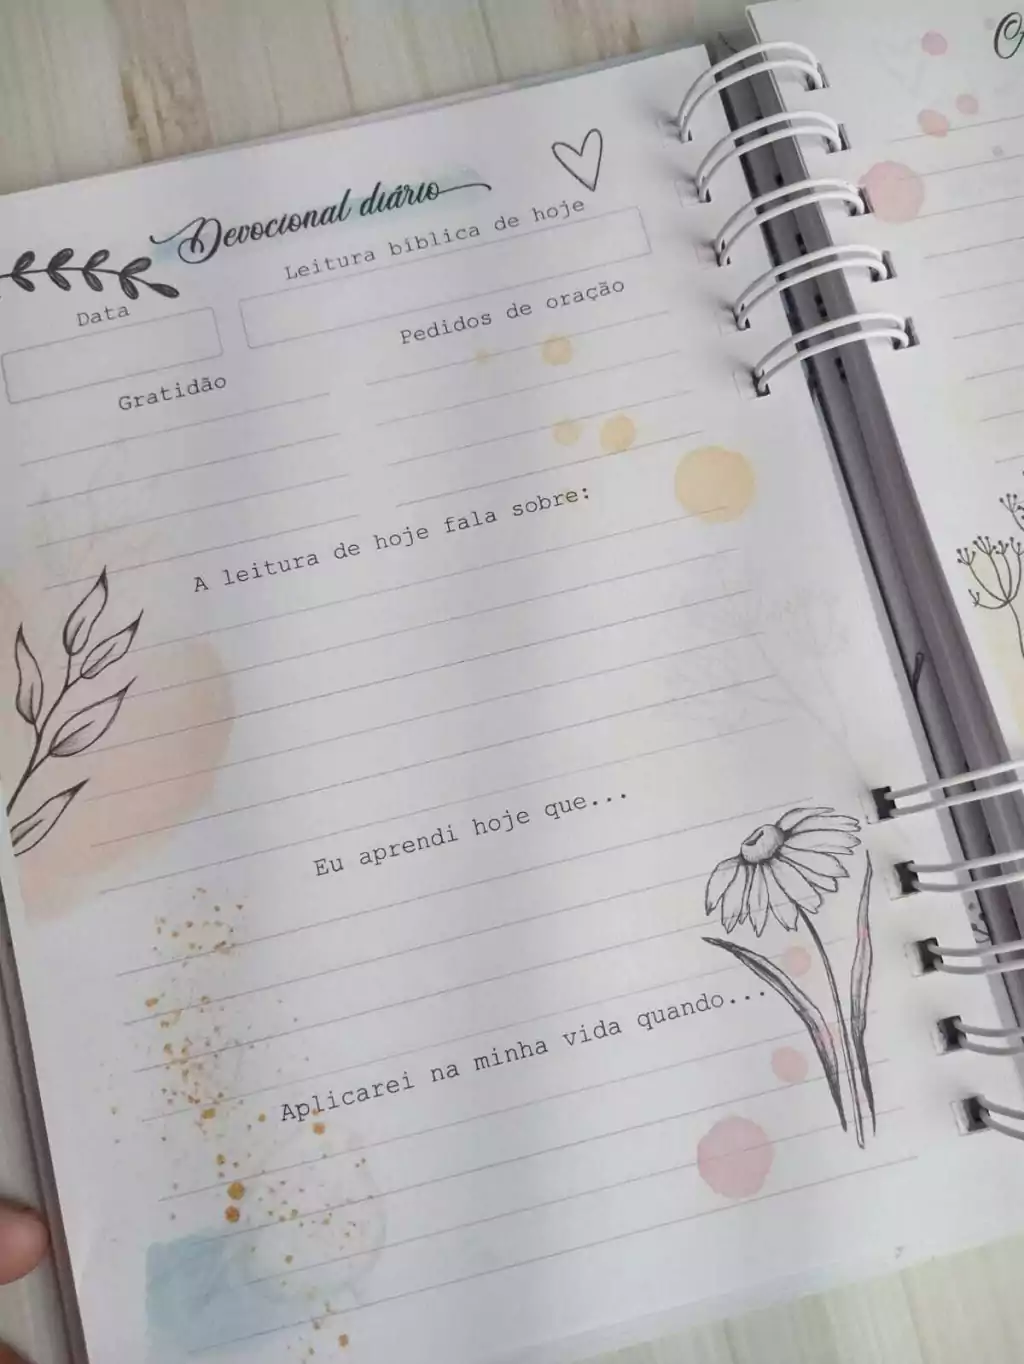 Devocional diário
Leitura bíblica de hoje
Data
Pedidos de oração
Gratidão
A leitura de hoje fala sobre:
Eu aprendi hoje que...
Aplicarei na minha vida quando...